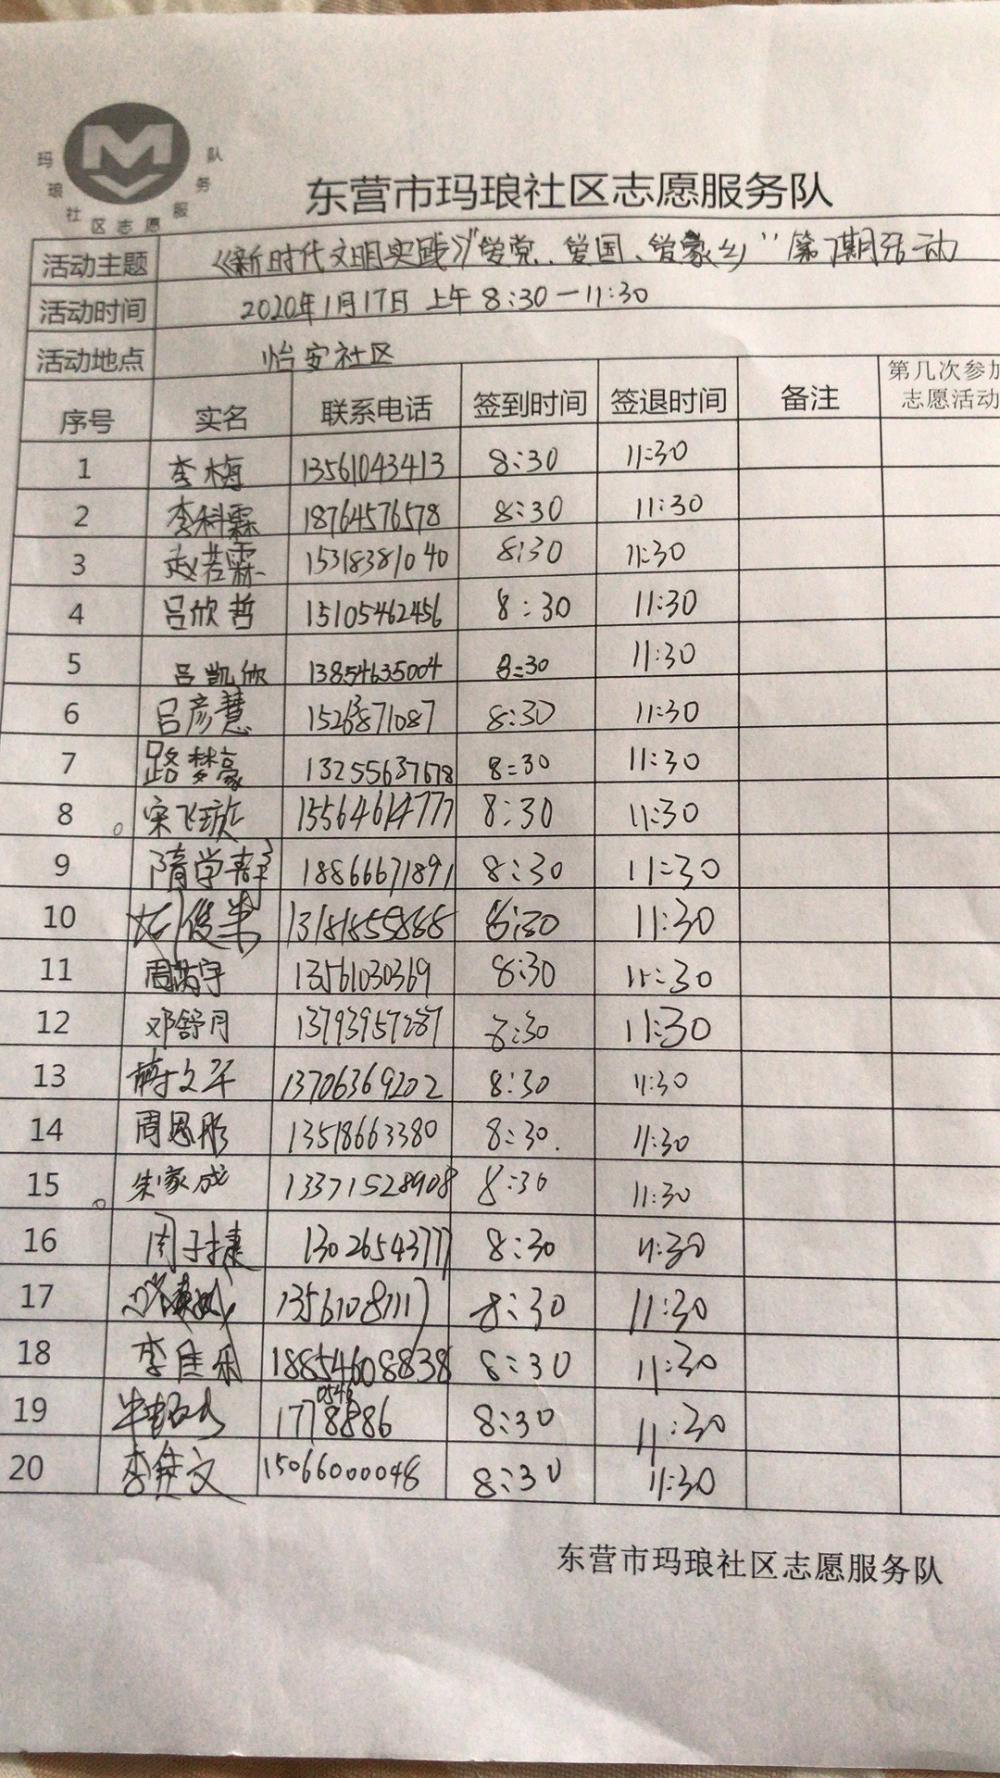 玛琅社区志愿服务队
东营市玛琅社区志愿服务队
活动主题 《新时代文明实践》"爱党、爱国、爱家乡" 第7期活动
活动时间 2020年1月17日 上午 8:30—11:30
活动地点 怡安社区
序号 实名 联系电话 签到时间 签退时间 备注 第几次参加志愿活动
1 李梅 13561043413 8:30 11:30
2 李科霖 18764576578 8:30 11:30
3 赵若霖 15318381040 8:30 11:30
4 吕欣哲 15105462456 8:30 11:30
5 吕凯欣 13854635004 8:30 11:30
6 吕彦慧 8:30 11:30
7 路梦豪 13255637678 8:30 11:30
8 宋飞 15564614777 8:30 11:30
9 隋学静 18866671891 8:30 11:30
10 8:30 11:30
11 周 宇 13561030369 8:30 11:30
12 邓舒月 13793957287 8:30 11:30
13 蒋文军 13706369202 8:30 11:30
14 周恩彤 13518663380 8:30 11:30
15 朱家成 13371528908 8:30 11:30
16 周子捷 13026543777 8:30 11:30
17 8:30 11:30
18 李佳 18854608838 8:30 11:30
19 0546 1778886 8:30 11:30
20 李 文 15066000048 8:30 11:30
东营市玛琅社区志愿服务队